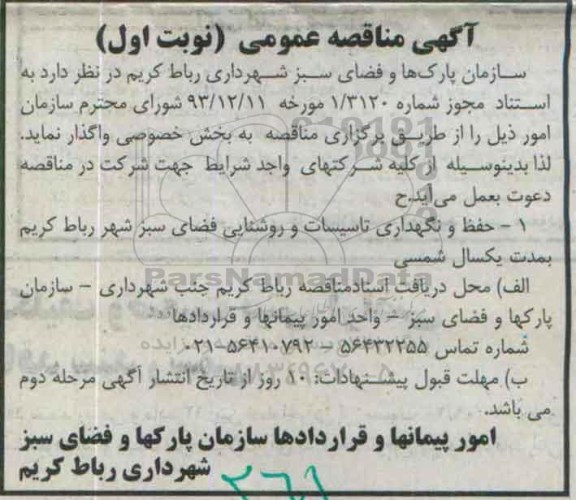 آگهی مناقصه عمومی (نوبت اول)
سازمان پارک‌ها و فضای سبز شهرداری رباط کریم در نظر دارد به
استناد مجوز شماره ۱/۳۱۲۰ مورخه ۹۳/۱۲/۱۱ شورای محترم سازمان
امور ذیل را از طریق برگزاری مناقصه به بخش خصوصی واگذار نماید.
لذا بدینوسیله از کلیه شرکتهای واجد شرایط جهت شرکت در مناقصه
دعوت بعمل می‌آید.ح
۱ - حفظ و نگهداری تاسیسات و روشنایی فضای سبز شهر رباط کریم
بمدت یکسال شمسی
ParsNamadData
الف) محل دریافت اسنادمناقصه رباط کریم جنب شهرداری - سازمان
پارکها و فضای سبز - واحد امور پیمانها و قراردادها
شماره تماس ۵۶۴۳۲۲۵۵ - ۵۶۴۱۰۷۹۲-۰۲۱
ب) مهلت قبول پیشنهادات: ۱۰ روز از تاریخ انتشار آگهی مرحله دوم
می باشد.
امور پیمانها و قراردادها سازمان پارکها و فضای سبز
شهرداری رباط کریم